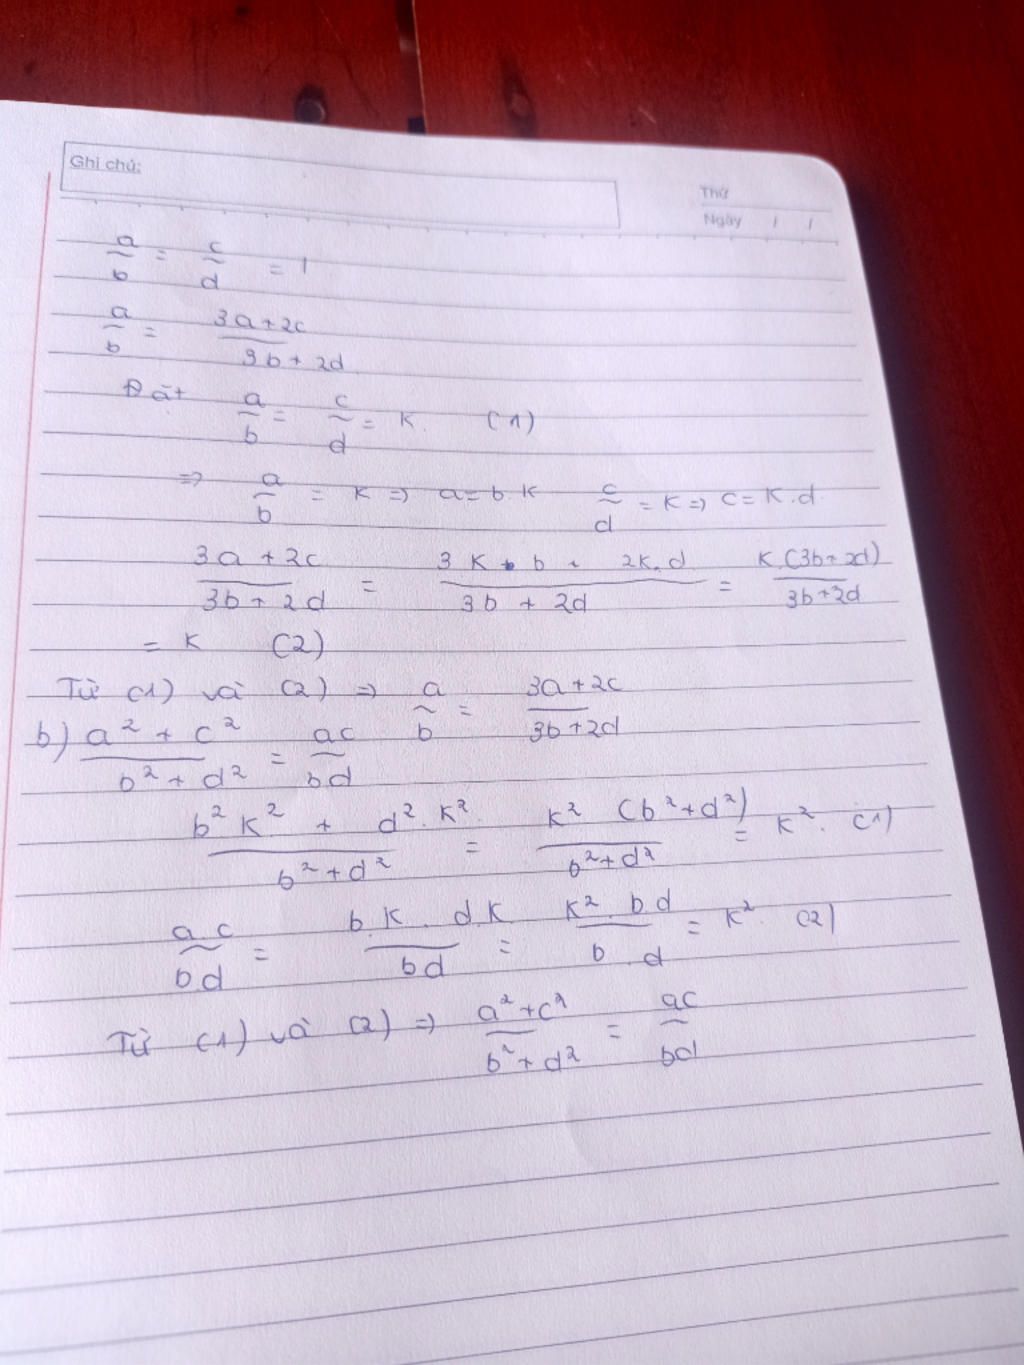 Ghi chú:
Thứ
Ngày / /
a/b = c/d = 1
a/b = (3a+2c)/(3b+2d)
Đặt a/b = c/d = K. (1)
=> a/b = K => a = b.K c/d = K => c = K.d
(3a+2c)/(3b+2d) = (3K.b + 2K.d)/(3b+2d) = K.(3b+2d)/(3b+2d)
= K (2)
Từ (1) và (2) => a/b = (3a+2c)/(3b+2d)
b) (a²+c²)/(b²+d²) = ac/bd
(b²K² + d².K²)/(b²+d²) = K²(b²+d²)/(b²+d²) = K². (1)
ac/bd = (b.K.d.K)/bd = (K².bd)/(b.d) = K². (2)
Từ (1) và (2) => (a²+c²)/(b²+d²) = ac/bd